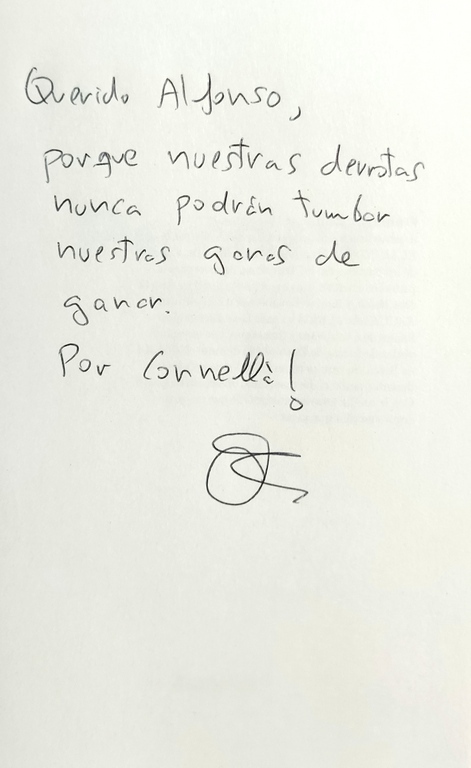 Querido Alfonso,
porque nuestras derrotas
nunca podrán tumbar
nuestras ganas de
ganar.
Por Cornellà!